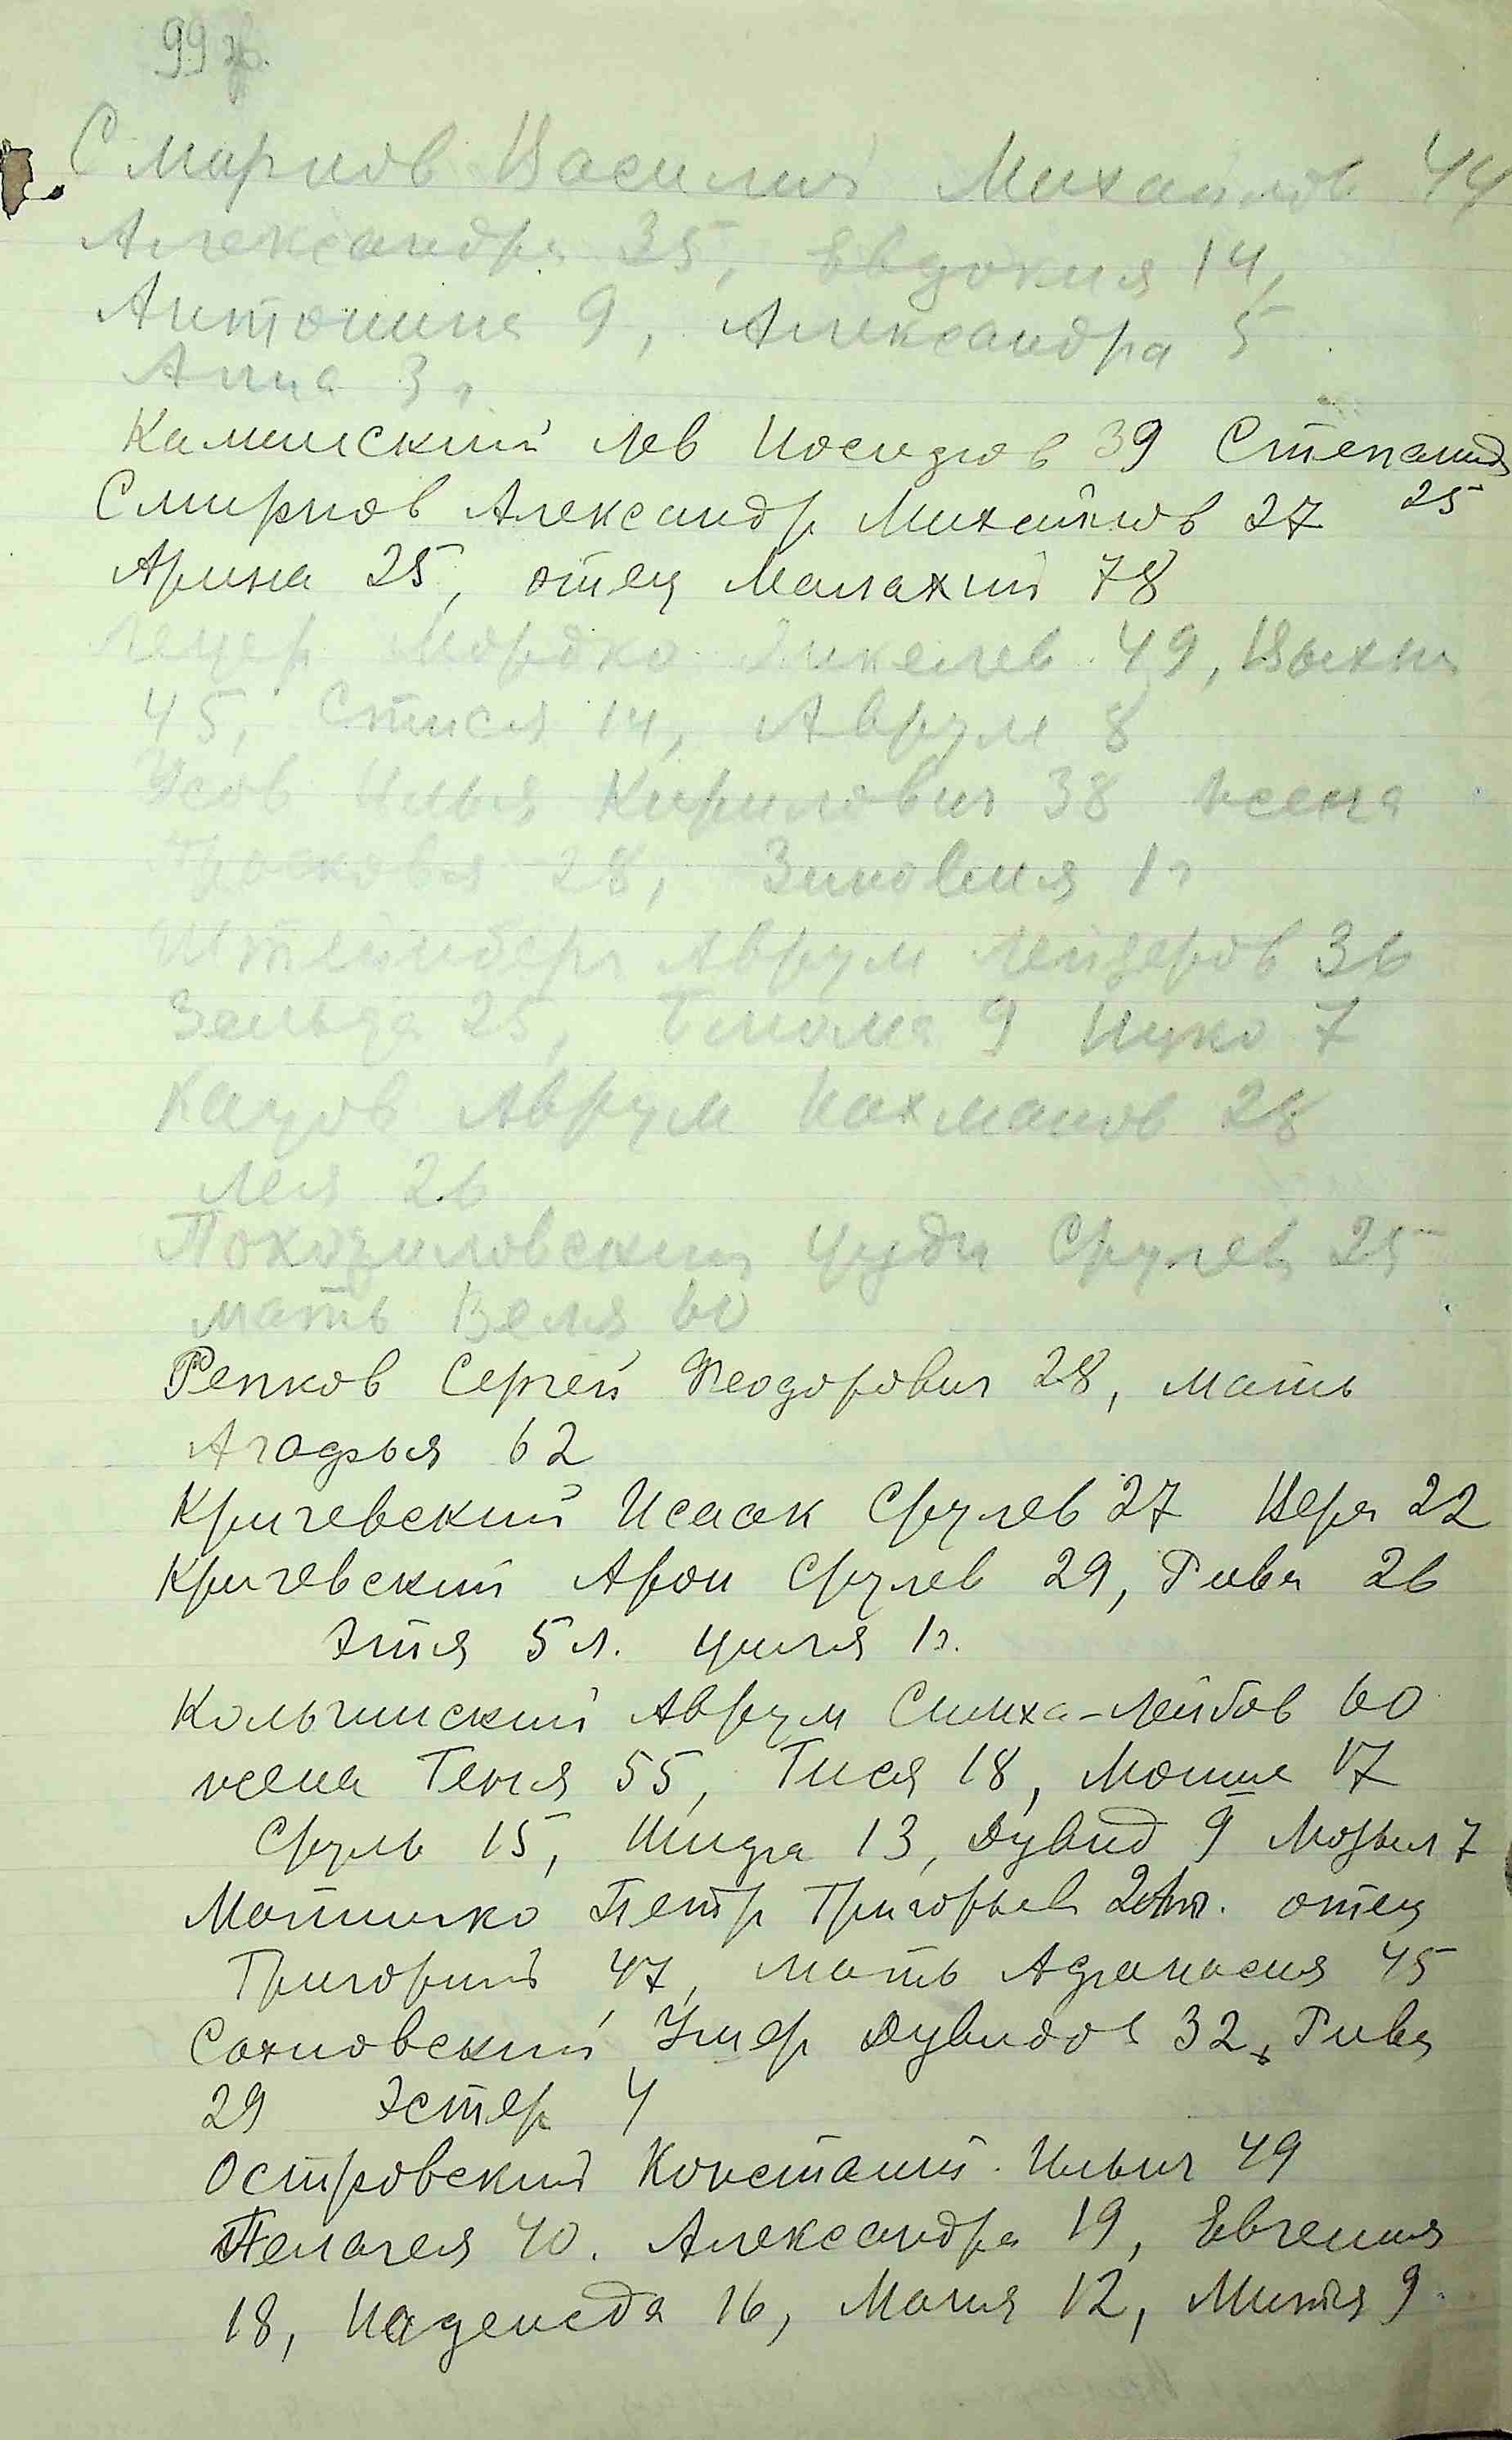 99 об.
Смирнов Василий Михайлов 44
Александра 35, Евдокия 14,
Антонина 9, Александра 5
Анна 3 г
Каминский Лев Иосифов 39 Степанида
Смирнов Александр Михайлов 27 25
Арина 25, отец Малахий 78
Мордко 49,
45, 14, Аврум 8
Усов Илья Кирилович 38 жена
Прасковья 28, Зиновия 1 г
Штейнберг Аврум Лейзеров 36
Зельда 25, 9 Ицко 7
Кацов Аврум Нахманов 28
Лея 26
Срулев 25
мать Веля 60
Репков Сергей Феодорович 28, мать
Агафья 62
Кричевский Исаак Срулев 27 Вера 22
Кричевский Арон Срулев 29, Рива 26
Этля 5 л. Циля 1 г.
Кольчинский Аврум Симха-Лейбов 60
жена Геня 55, Тися 18, Мошие 17
Сруль 15, Шифра 13, Дувид 9 7
Петр Григорьев отец
Григорий 47, мать Афанасия 45
Сахновский Ушер Дувидов 32, Рива
29 Эстер 4
Островский Констант. Ильич 49
Пелагея 40. Александра 19, Евгения
18, Надежда 16, Мания 12, Митя 9